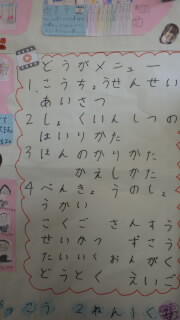 どうがメニュー
1.こうちょうせんせい
あいさつ
2しょくいんしつの
はいりかた
3ほんのかりかた
かえしかた
4べんきょうのしょ
うかい
こくご さんすう
せいかつ ずこう
たいいく おんがく
どうとく えいご